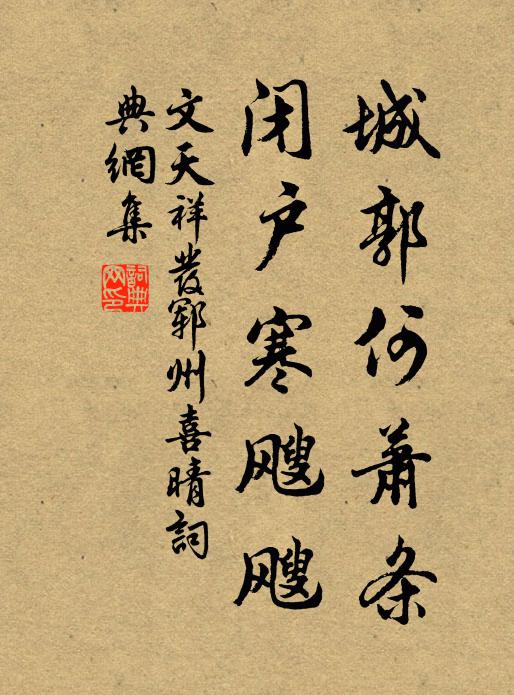 城郭何萧条
闭户寒飕飕
文天祥發郓州喜晴詞
典網集
詞典网印